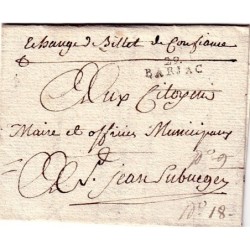 Echange de Billet de Confiance
29
BARJAC
Aux Citoyens
Maire et officiers Municipaux
de St Jean
N° 9
N° 18